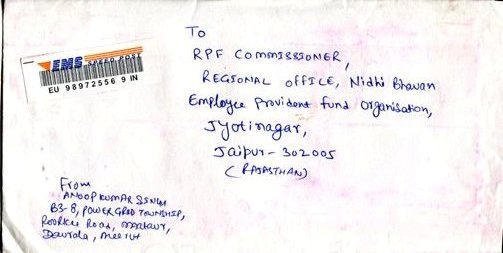 EMS SPEED POST
EU 98972556 9 IN
To
RPF COMMISSIONER,
REGIONAL OFFICE, Nidhi Bhavan
Employee Provident Fund Organisation,
Jyotinagar,
Jaipur-302005
(RAJASTHAN)
From
ANOOP KUMAR
B3-8, POWER GRID TOWNSHIP,
Roorkee Road,
Daurola, Meerut